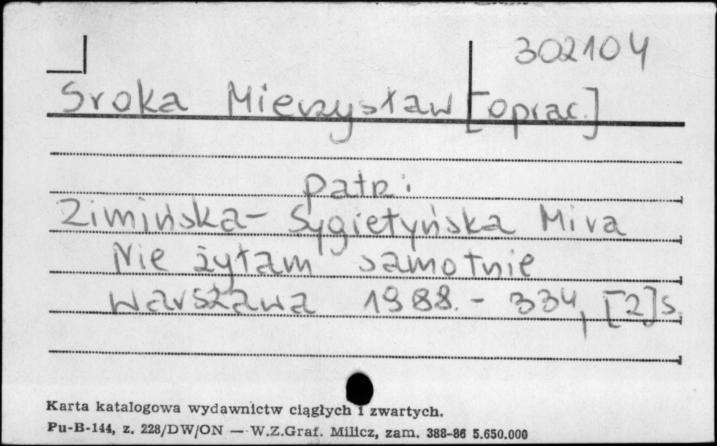 302104
Sroka Mieczysław [oprac.]
patr:
Zimińska-Sygietyńska Mira
Nie żyłam samotnie
Warszawa 1988. - 334, [2]s.
Karta katalogowa wydawnictw ciągłych i zwartych.
Pu-B-144, z. 228/DW/ON — W.Z.Graf. Milicz, zam. 388-86 5.650.000